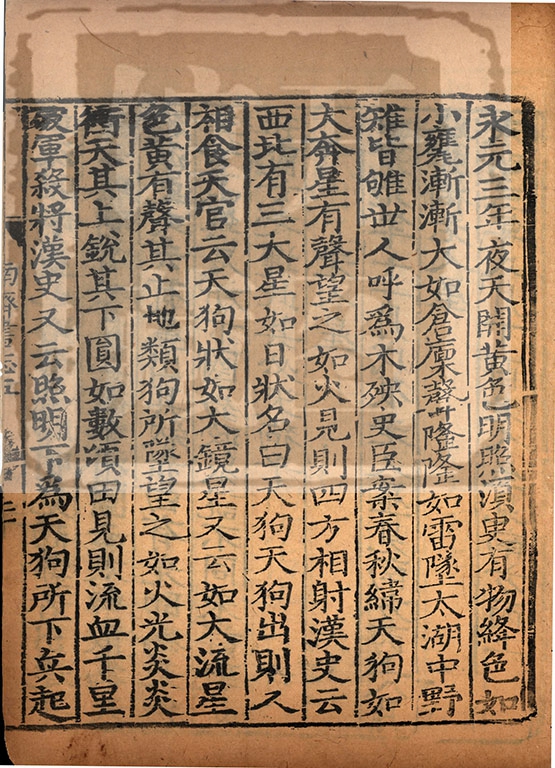 永元三年夜天開黃色明照須㬰有物絳色如
小甕漸漸大如倉廩聲隆隆如雷墜太湖中野
雉皆雊世人呼為木殃史臣案春秋緯天狗如
大奔星有聲望之如火見則四方相射漢史云
西北有三大星如日狀名曰天狗天狗出則人
相食天官云天狗狀如大鏡星又云如大流星
色黃有聲其止地類狗所墜望之如火光炎炎
衝天其上銳其下圓如數頃田見則流血千里
破軍殺將漢史又云照明下為天狗所下兵起
南齊書志五